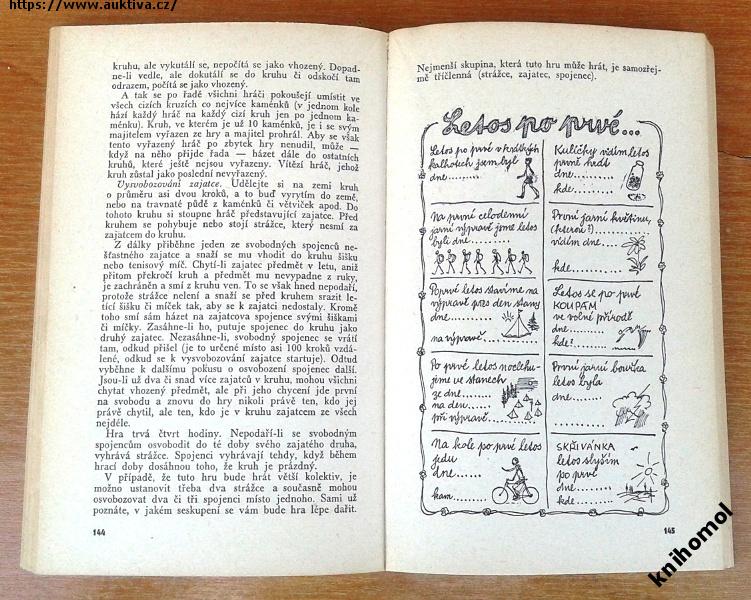 https://www.auktiva.cz/
kruhu, ale vykutálí se, nepočítá se jako vhozený. Dopad-
ne-li vedle, ale dokutálí se do kruhu či odskočí tam
odrazem, počítá se jako vhozený.
A tak se po řadě všichni hráči pokoušejí umístit ve
všech cizích kruzích co nejvíce kaménků (v jednom kole
hází každý hráč na každý cizí kruh jen po jednom ka-
ménku). Kruh, ve kterém je už 10 kaménků, je i se svým
majitelem vyřazen ze hry a majitel prohrál. Aby se však
tento vyřazený hráč po zbytek hry nenudil, může —
když na něho přijde řada — házet dále do ostatních
kruhů, které ještě nejsou vyřazeny. Vítězí hráč, jehož
kruh zůstal jako poslední nevyřazený.
Vysvobozování zajatce. Udělejte si na zemi kruh
o průměru asi dvou kroků, a to buď vyrytím do země,
nebo na travnaté půdě z kaménků či větviček apod. Do
tohoto kruhu si stoupne hráč představující zajatce. Před
kruhem se pohybuje nebo stojí strážce, který nesmí za
zajatcem do kruhu.
Z dálky přiběhne jeden ze svobodných spojenců ne-
šťastného zajatce a snaží se mu vhodit do kruhu šišku
nebo tenisový míč. Chytí-li zajatec předmět v letu, aniž
přitom překročí kruh a předmět mu nevypadne z ruky,
je zachráněn a smí z kruhu ven. To se však hned nepodaří,
protože strážce nelení a snaží se před kruhem srazit le-
tící šišku či míček tak, aby se k zajatci nedostaly. Kromě
toho smí sám házet na zajatcova spojence svými šiškami
či míčky. Zasáhne-li ho, putuje spojenec do kruhu jako
druhý zajatec. Nezasáhne-li, svobodný spojenec se vrátí
tam, odkud přišel (je to určené místo asi 100 kroků vzdá-
lené, odkud se k vysvobozování zajatce startuje). Odtud
vyběhne k dalšímu pokusu o osvobození spojenec další.
Jsou-li už dva či snad více zajatců v kruhu, mohou všichni
chytat vhozený předmět, ale při jeho chycení jde první
na svobodu a znovu do hry nikoli právě ten, kdo jej
právě chytil, ale ten, kdo je v kruhu zajatcem ze všech
nejdéle.
Hra trvá čtvrt hodiny. Nepodaří-li se svobodným
spojencům osvobodit do té doby svého zajatého druha,
vyhrává strážce. Spojenci vyhrávají tehdy, když během
hrací doby dosáhnou toho, že kruh je prázdný.
V případě, že tuto hru bude hrát větší kolektiv, je
možno ustanovit třeba dva strážce a současně mohou
osvobozovat dva či tři spojenci místo jednoho. Sami už
poznáte, v jakém seskupení se vám bude hra lépe dařit.
144
Nejmenší skupina, která tuto hru může hrát, je samozřej-
mě tříčlenná (strážce, zajatec, spojenec).
Letos po prvé...
Letos po prvé v krátkých
kalhotech jsem byl
dne........
Kuličky vidím letos
prvně hrát
dne........
kde........
Na první celodenní
jarní výpravě jsme letos
byli dne........
První jarní květinu,
(kterou?)........
vidím dne.....
kde........
Poprvé letos stavíme na
výpravě přes den stany
dne........
na výpravě........
Letos se po prvé
KOUPÁM
ve volné přírodě
dne........
kde?........
Po prvé letos noclehu-
jeme ve stanech
ze dne....
na den.....
při výpravě.....
První jarní bouřka
letos byla
dne........
Na kole po prvé letos
jedu
dne....
kam........
SKŘIVÁNKA
letos slyším
po prvé
dne........
kde........
145
knihomol